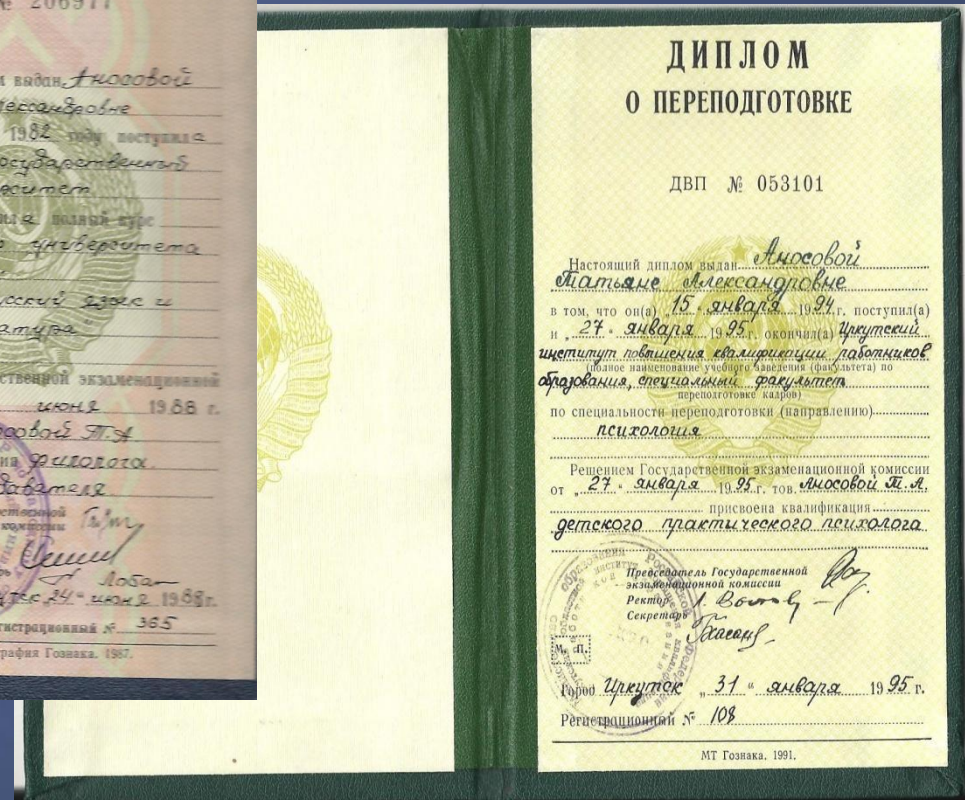 № 206911
выдан Аносовой
лександровне
1982 году поступила
осударственный
ерситет
ила полный курс
университета
усский язык и
атура
ственной экзаменационной
июня 1988 г.
Т.А
филолога.
давателя
Лобан
24 " июня 1988г.
гистрационный № 365
рафия Гознака. 1987.
ДИПЛОМ
О ПЕРЕПОДГОТОВКЕ
ДВП № 053101
Настоящий диплом выдан Аносовой
Татьяне Александровне
в том, что он(а) „ 15 " января 1994 г. поступил(а)
и „ 27 " января 1995 г. окончил(а) Иркутский
институт повышения квалификации работников
(полное наименование учебного заведения (факультета) по
образования, специальный факультет
переподготовке кадров)
по специальности переподготовки (направлению)
психология
Решением Государственной экзаменационной комиссии
от „ 27 " января 1995 г. тов. Аносовой Т.А.
присвоена квалификация
детского практического психолога
Председатель Государственной
экзаменационной комиссии
Ректор
Секретарь
М. П.
Город Иркутск „ 31 " января 1995 г.
Регистрационный № 108
МТ Гознака. 1991.